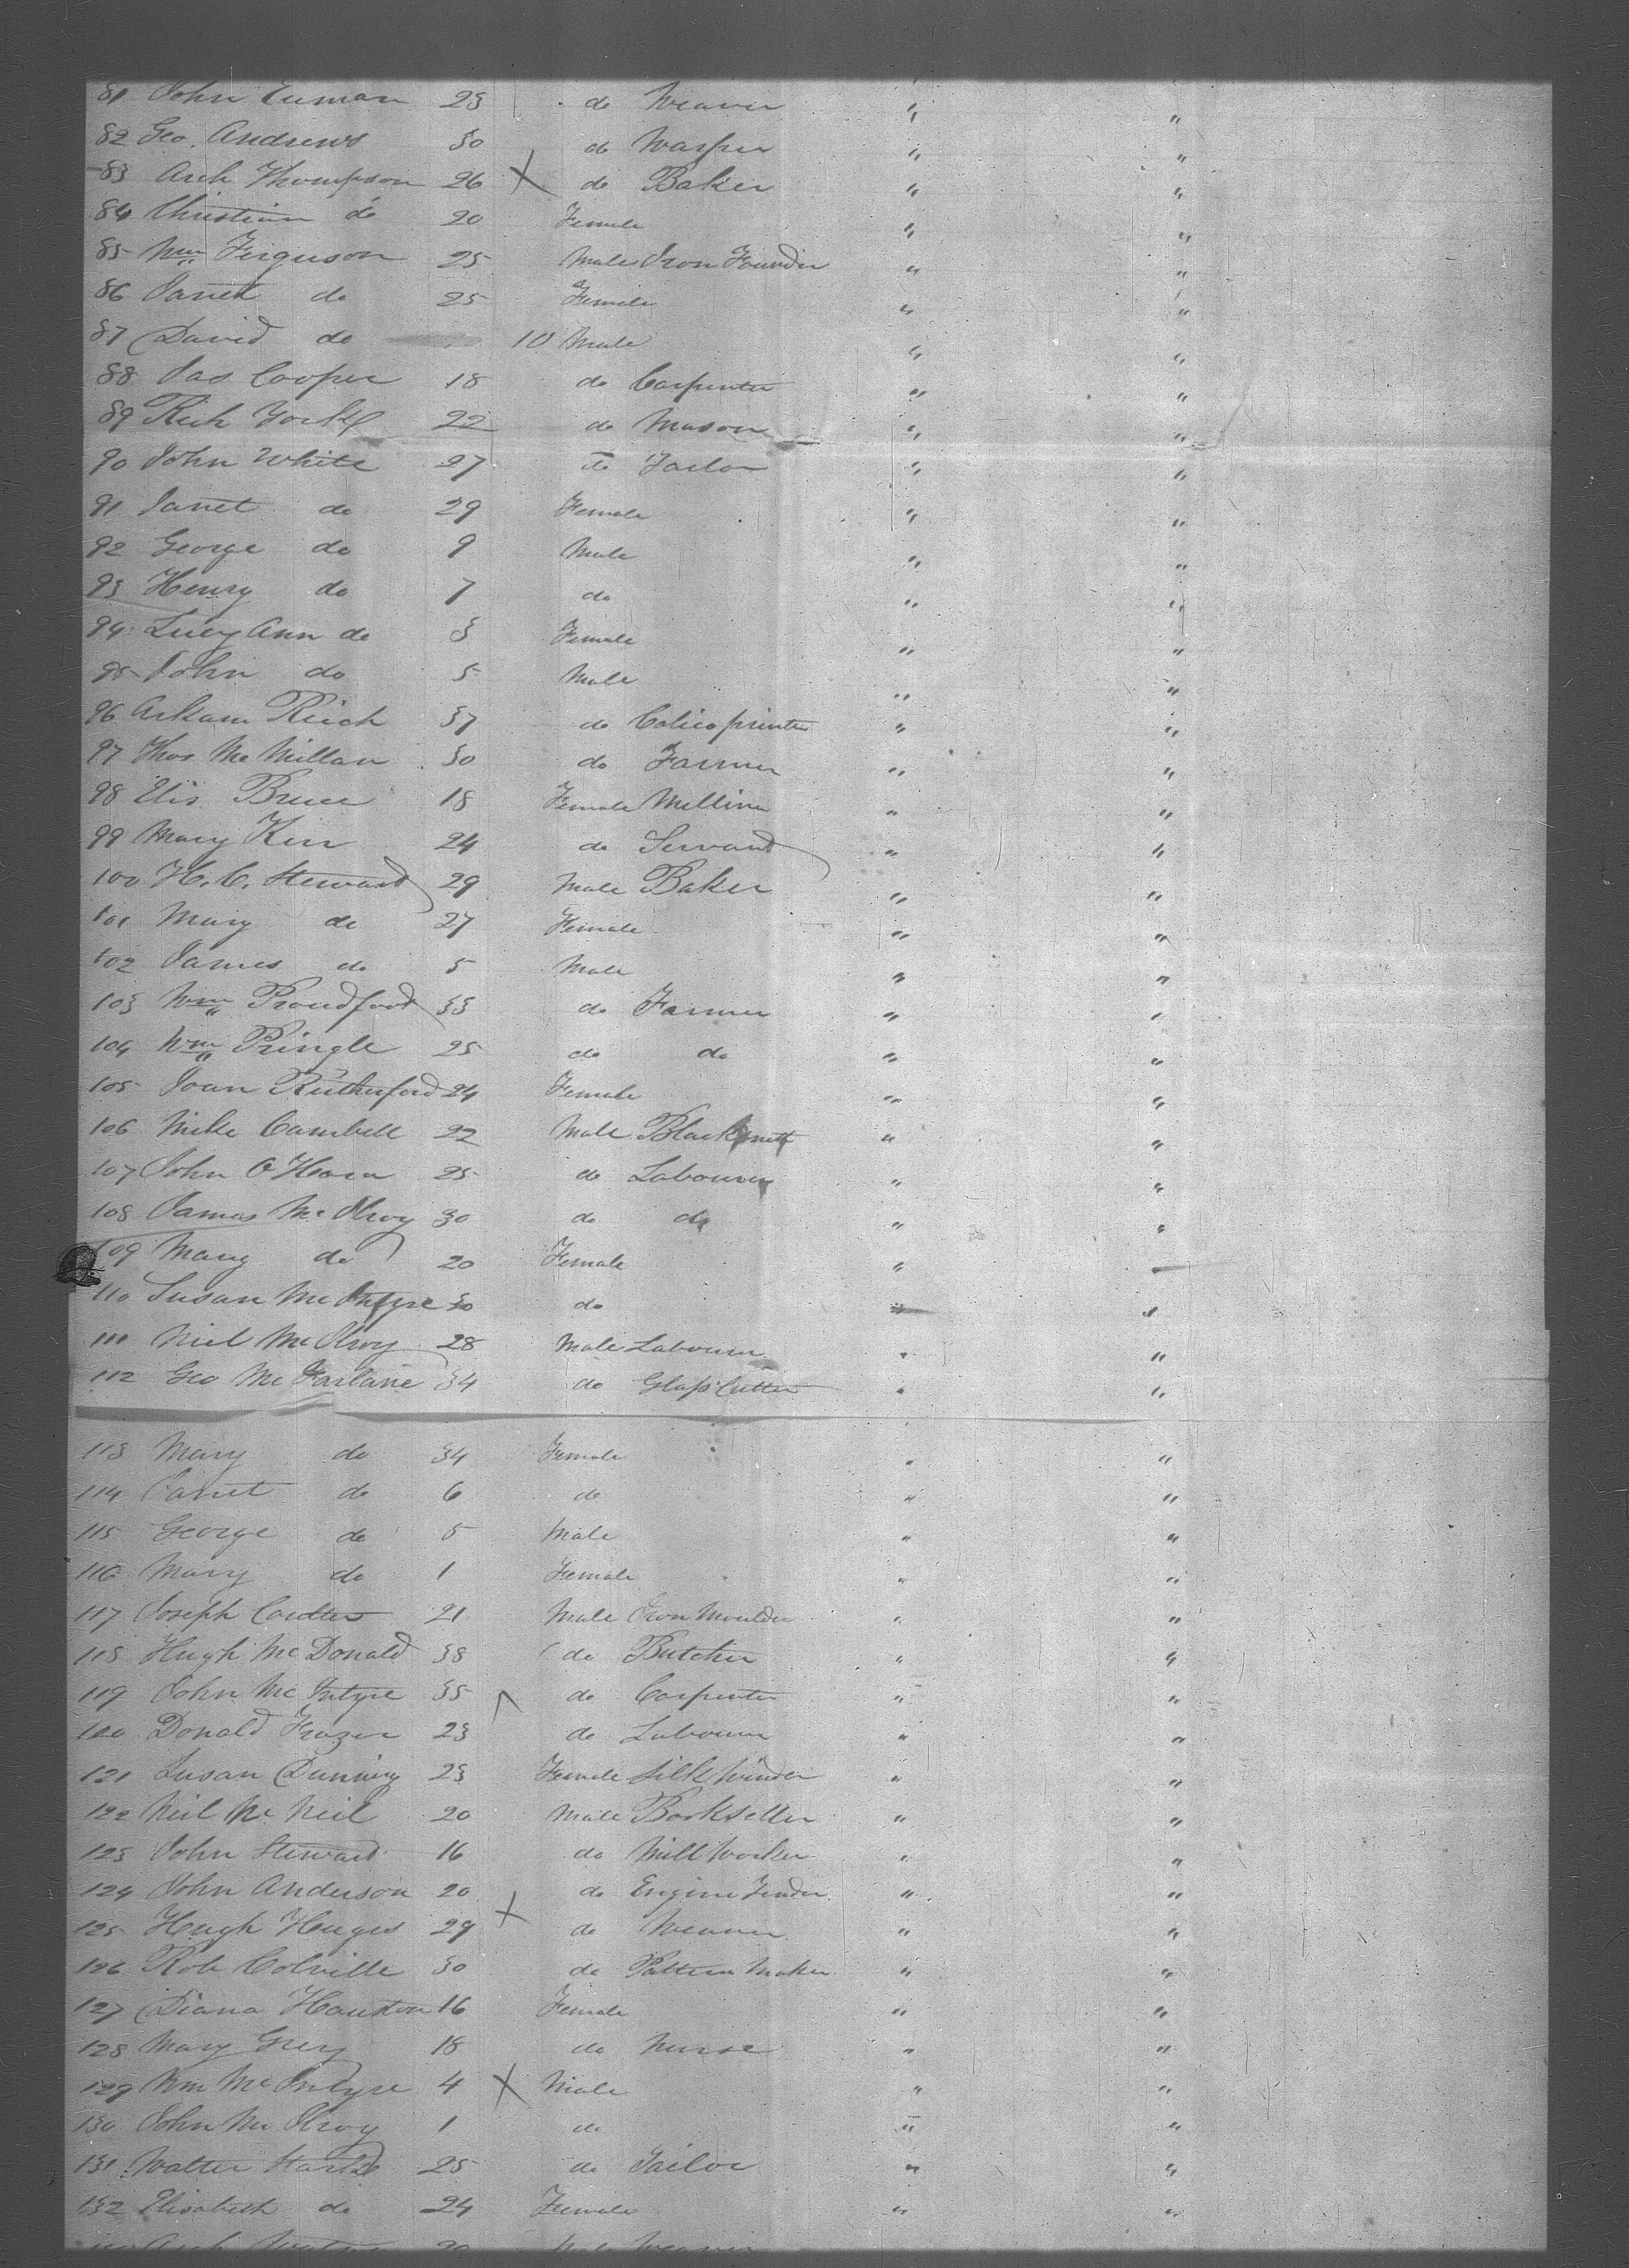 81 John Inman 23 do Weaver " "
82 Geo. Andrews 30 do Warper " "
83 Arch Thompson 26 X do Baker " "
84 Christian do 20 Female " "
85 Wm Ferguson 25 Male Iron Founder " "
86 Janet do 25 Female " "
87 David do 10 Male " "
88 Jas Cooper 18 do Carpenter " "
89 Rich York 22 do Mason " "
90 John White 27 do Tailor " "
91 Janet do 29 Female " "
92 George do 9 Male " "
93 Henry do 7 do " "
94 Lucy Ann do 3 Female " "
95 John do 5 Male " "
96 Arkam Reich 37 do Calico printer " "
97 Thos McMillan 30 do Farmer " "
98 Elis Bruce 18 Female Milliner " "
99 Mary Kerr 24 do Servant " "
100 H. C. Steward 29 Male Baker " "
101 Mary do 27 Female " "
102 James do 5 Male " "
103 Wm Proudfoot 33 do Farmer " "
104 Wm Pringle 25 do do " "
105 Joan Rutherford 24 Female " "
106 Mike Cambell 22 Male Blacksmith " "
107 John O'Hara 25 do Labourer " "
108 James McIlroy 30 do do " "
109 Mary do 20 Female "
110 Susan McIntyre 30 do " "
111 Niel McIlroy 28 Male Labourer " "
112 Geo McFarlane 34 do Glass Cutter " "
113 Mary do 34 Female " "
114 Janet do 6 do " "
115 George do 5 Male " "
116 Mary do 1 Female " "
117 Joseph 21 Male Iron Moulder " "
118 Hugh McDonald 38 do Butcher " "
119 John McIntyre 35 do Carpenter " "
120 Donald Frazer 23 do Labourer " "
121 Susan Dunning 23 Female Silk Winder " "
122 Neil McNeil 20 Male Bookseller " "
123 John Steward 16 do Mill Worker " "
124 John Anderson 20 do Engine Tender " "
125 Hugh Huges 29 X do Weaver " "
126 Rob Colville 30 do Pattern Maker " "
127 Diana Houston 16 Female " "
128 Mary Grey 18 do Nurse " "
129 Wm McIntyre 4 X Male " "
130 John McIlroy 1 do " "
131 Walter Stark 25 do Tailor " "
132 Elisabeth do 24 Female " "